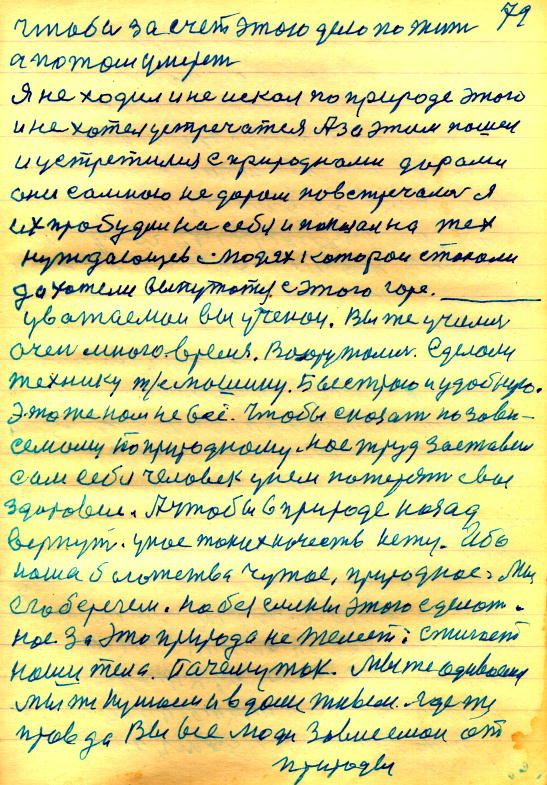 79
чтобы за счет этого дело пожит
а потом умерет
Я не ходил и не искал по природе этого
и не хотел устречатся А за этим пошел
и устретился с природнами дарами
они самною не даром повстречалос я
их пробудил на себя и попал на тех
нуждающев людях котораи стокали
да хотели выпутотся с этого горе.
уважаемаи вы ученаи. Вы же училис
очен много время. Вооружилис. Сделали
технику т/е машину. Быстрою и удобную.
Это же нам не все. Чтобы сказат по
семому по природному. нас труд заставил
сам себя человек унем потерят свое
здоровие. А чтобы в природе назад
вернут. унас таких качеств нету. Ибо
наша богатства чужое, природное. Мы
его беречем. но бессилны этого сделат.
нас за это природа не жалеет: стигает
наши тела. Пачему так. Мы же одиваемся
мы же кушаем и в доми живем. где же
правда Вы все люди зависемаи от
природы